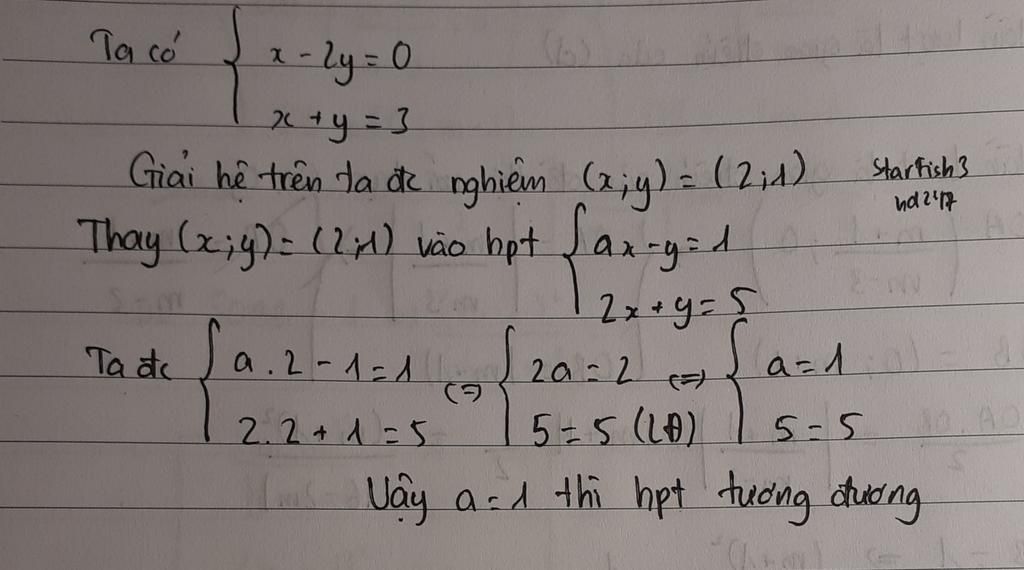 Ta có { x - 2y = 0
x + y = 3
Giải hệ trên ta đc nghiệm (x;y) = (2;1) Starfish3
Thay (x;y) = (2;1) vào hpt { ax - y = 1
2x + y = 5
Ta đc { a.2 - 1 = 1 <=> { 2a = 2 <=> { a = 1
2.2 + 1 = 5 5 = 5 (LĐ) 5 = 5
Vậy a = 1 thì hpt tương đương